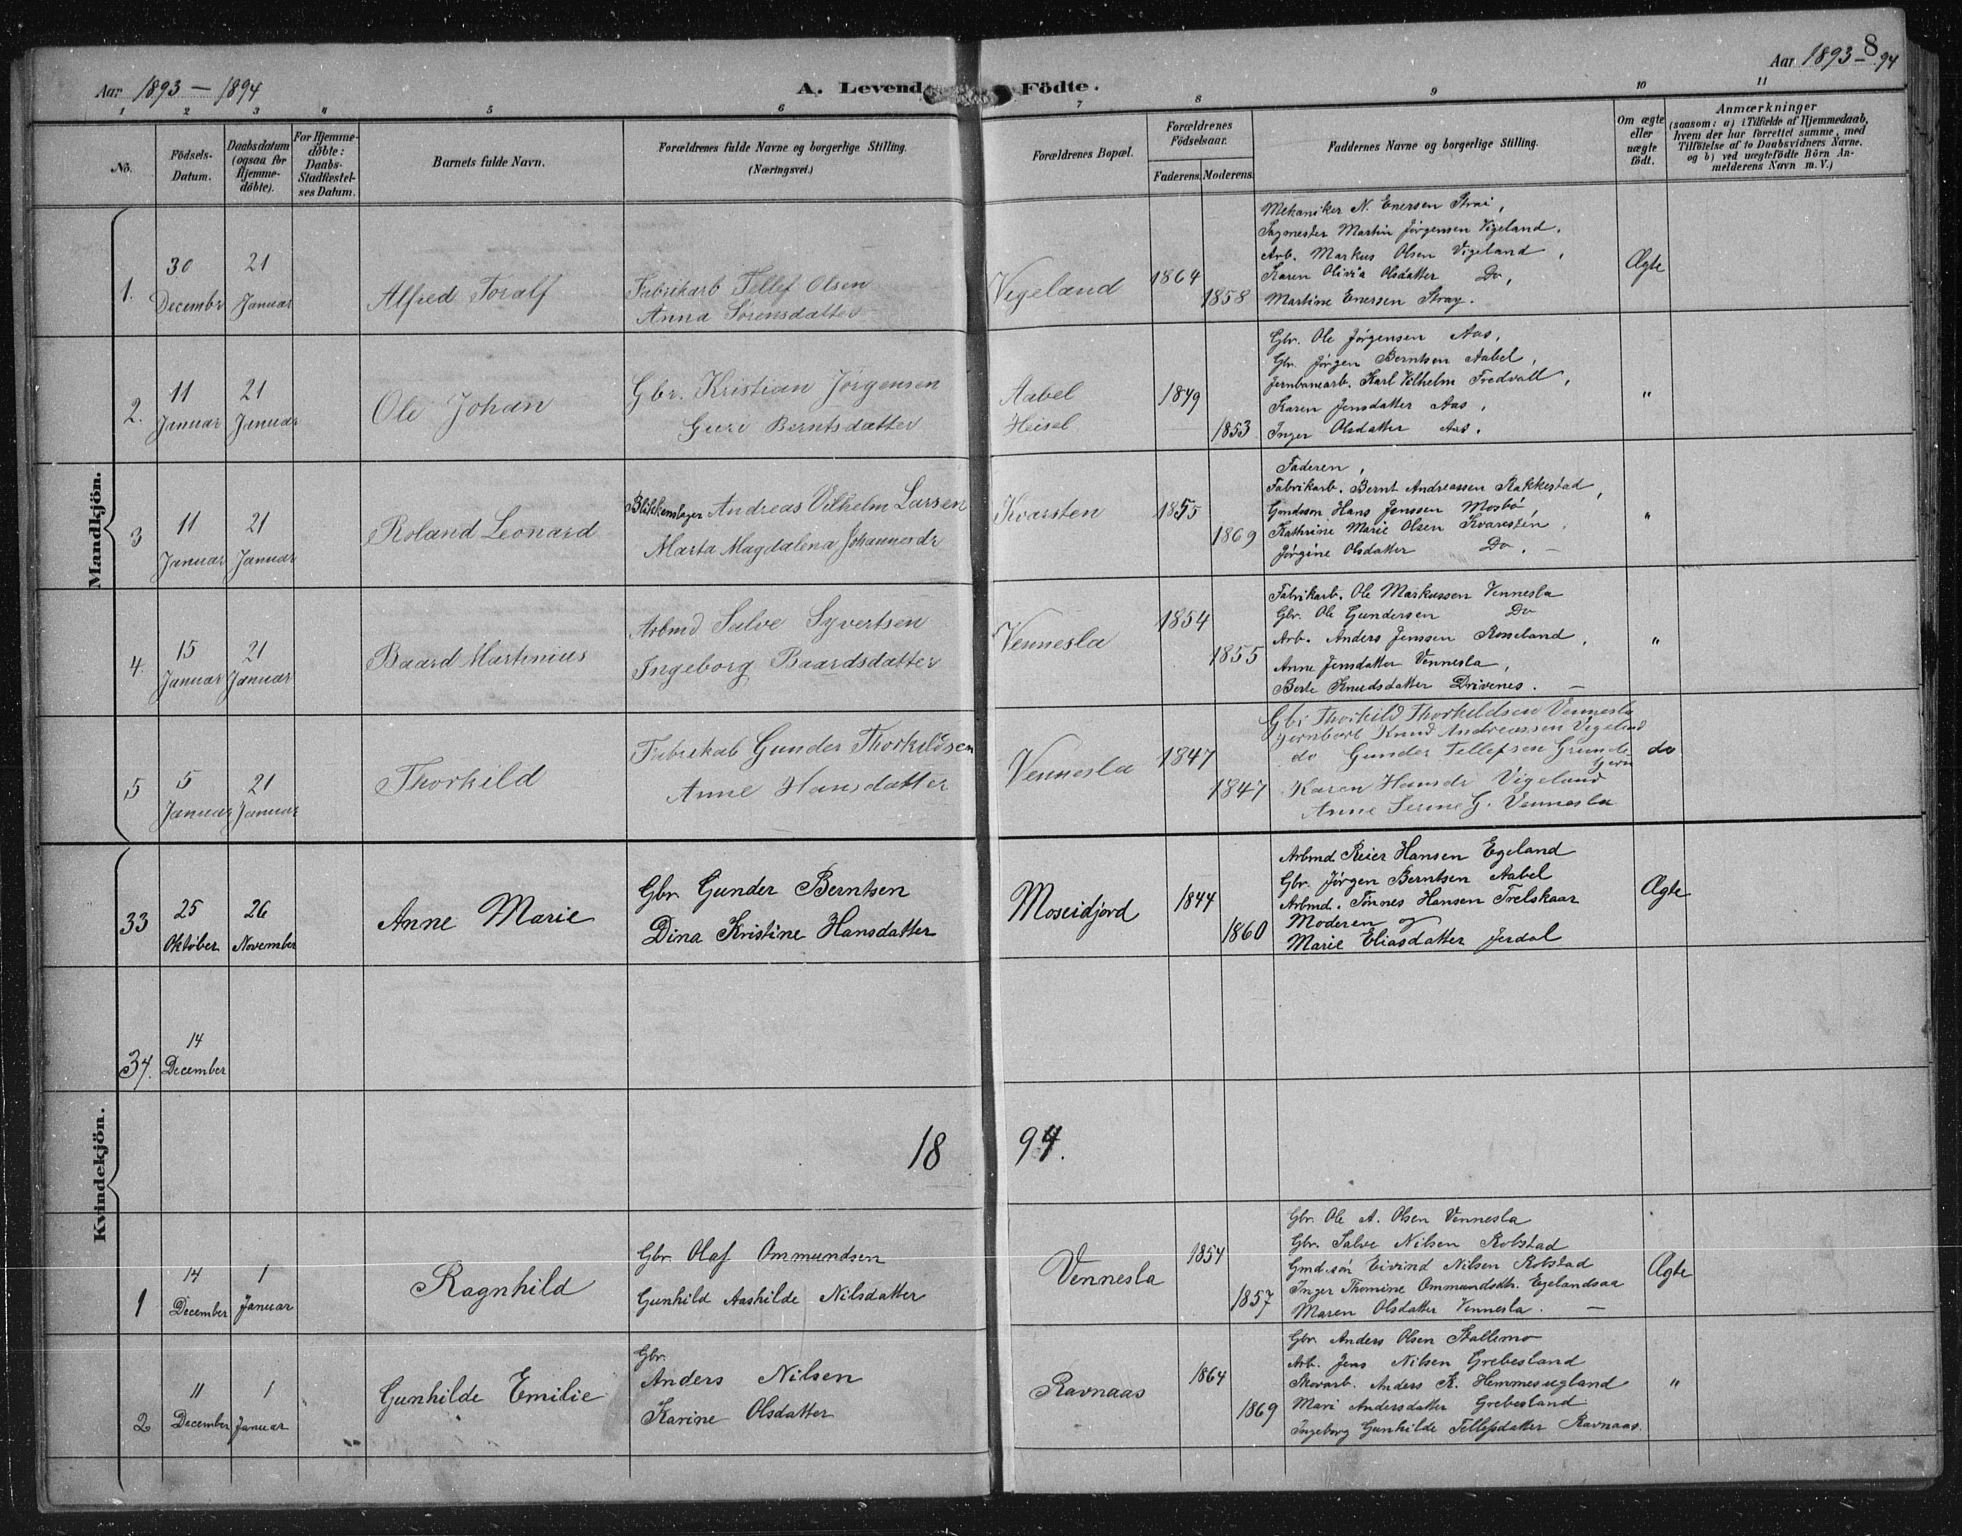 Aar 1893 – 1894
A. Levende Födte.
Aar 1893 – 94
8
1 2 3 4 5 6 7 8 9 10 11
No.
Födsels-
Datum.
Daabsdatum
(ogsaa for
Hjemme-
döbte).
For Hjemme-
döbte:
Daabs-
Stadfæstel-
ses Datum.
Barnets fulde Navn.
Forældrenes fulde Navne og borgerlige Stilling.
(Næringsvei.)
Forældrenes Bopæl.
Forældrenes
Födselsaar.
Faderens. Moderens.
Faddernes Navne og borgerlige Stilling.
Om ægte
eller
uægte
födt.
Anmærkninger
(saasom: a) i Tilfælde af Hjemmedaab,
hvem der har forrettet samme, med
Tilföielse af to Daabsvidners Navne.
og b) ved uægtefödte Börn An-
melderens Navn m. V.)
Mandkjön.
1. 30 Decembr 21 Januar
Alfred Toralf
Fabrikarb Tellef Olsen
Anna Sörensdatter
Vigeland 1864 1858
Mekaniker N. Enersen Strai,
Sagmester Martin Jörgensen Vigeland,
Arb. Markus Olsen Vigeland,
Karen Olivia Olsdatter Do,
Martine Enersen Stray.
Ægte
2. 11 Januar 21 Januar
Ole Johan
Gbr. Kristian Jørgensen
Guri Berntsdatter
Aabel
Heisel
1849 1853
Gbr. Ole Jørgensen Aas,
Gbr. Jørgen Berntsen Aabel,
Jernbanearb. Karl Vilhelm Fredvall,
Karen Jensdatter Aas,
Inger Olsdatter Aas.
"
3 11 Januar 21 Januar
Roland Leonard
Blikkenslager Andreas Vilhelm Larsen
Marta Magdalena Johannesdr
Kvarsten 1855 1869
Faderen,
Fabrikarb. Bernt Andreassen Rakkestad,
Gmdssön Hans Jenssen Mosbö,
Kathrine Marie Olsen Kvarsten,
Jörgine Olsdatter Do. –
"
4. 15 Januar 21 Januar
Baard Martinius
Arbmd Salve Syvertsen
Ingeborg Baardsdatter
Vennesla 1854 1855
Fabrikarb. Ole Markussen Vennesla
Gbr. Ole Gundersen Do
Arb. Anders Jenssen Rosseland,
Anne Jensdatter Vennesla,
Berte Knudsdatter Drivenes. –
"
5 5 Januar 21 Januar
Thorkild
Fabrikab Gunder Thorkildsen
Anne Hansdatter
Vennesla 1847 1847
Gbr Thorkild Thorkildsen Vennesla
Jernbarb Knud Andreassen Vigeland
do Gunder Tellefsen Grunde
Karen Hansdr Vigeland
Anne Serine G. Vennesla
do
Kvindekjön.
33 25 Oktober 26 November
Anne Marie
Gbr Gunder Berntsen
Dina Kristine Hansdatter
Moseidjord 1844 1860
Arbmd Reier Hansen Egeland
Gbr. Jörgen Berntsen Aabel
Arbmd. Tönnes Hansen Trelskaar
Moderen og
Marie Eliasdatter Jerdal
Ægte
34. 14 December
18 94.
1 14 December 1 Januar
Ragnhild
Gbr Olaf Ommundsen
Gunhild Aashilde Nilsdatter
Vennesla 1854 1857
Gbr. Ole A. Olsen Vennesla
Gbr. Salve Nilsen Robstad
Gmdssön Eivind Nilsen Robstad
Inger Thomine Ommundsdtr. Egelandsaa
Maren Olsdatter Vennesla. –
Ægte
2 11 December 1 Januar
Gunhilde Emilie
Gbr.
Anders Nilsen
Karine Olsdatter
Ravnaas 1864 1869
Gbr Anders Olsen Stallemo
Arb. Jens Nilsen Grebesland
Skovarb. Anders K. Hemmesugland
Mari Andersdatter Grebesland
Ingeborg Gunhilde Tellefsdatter Ravnaas.
"